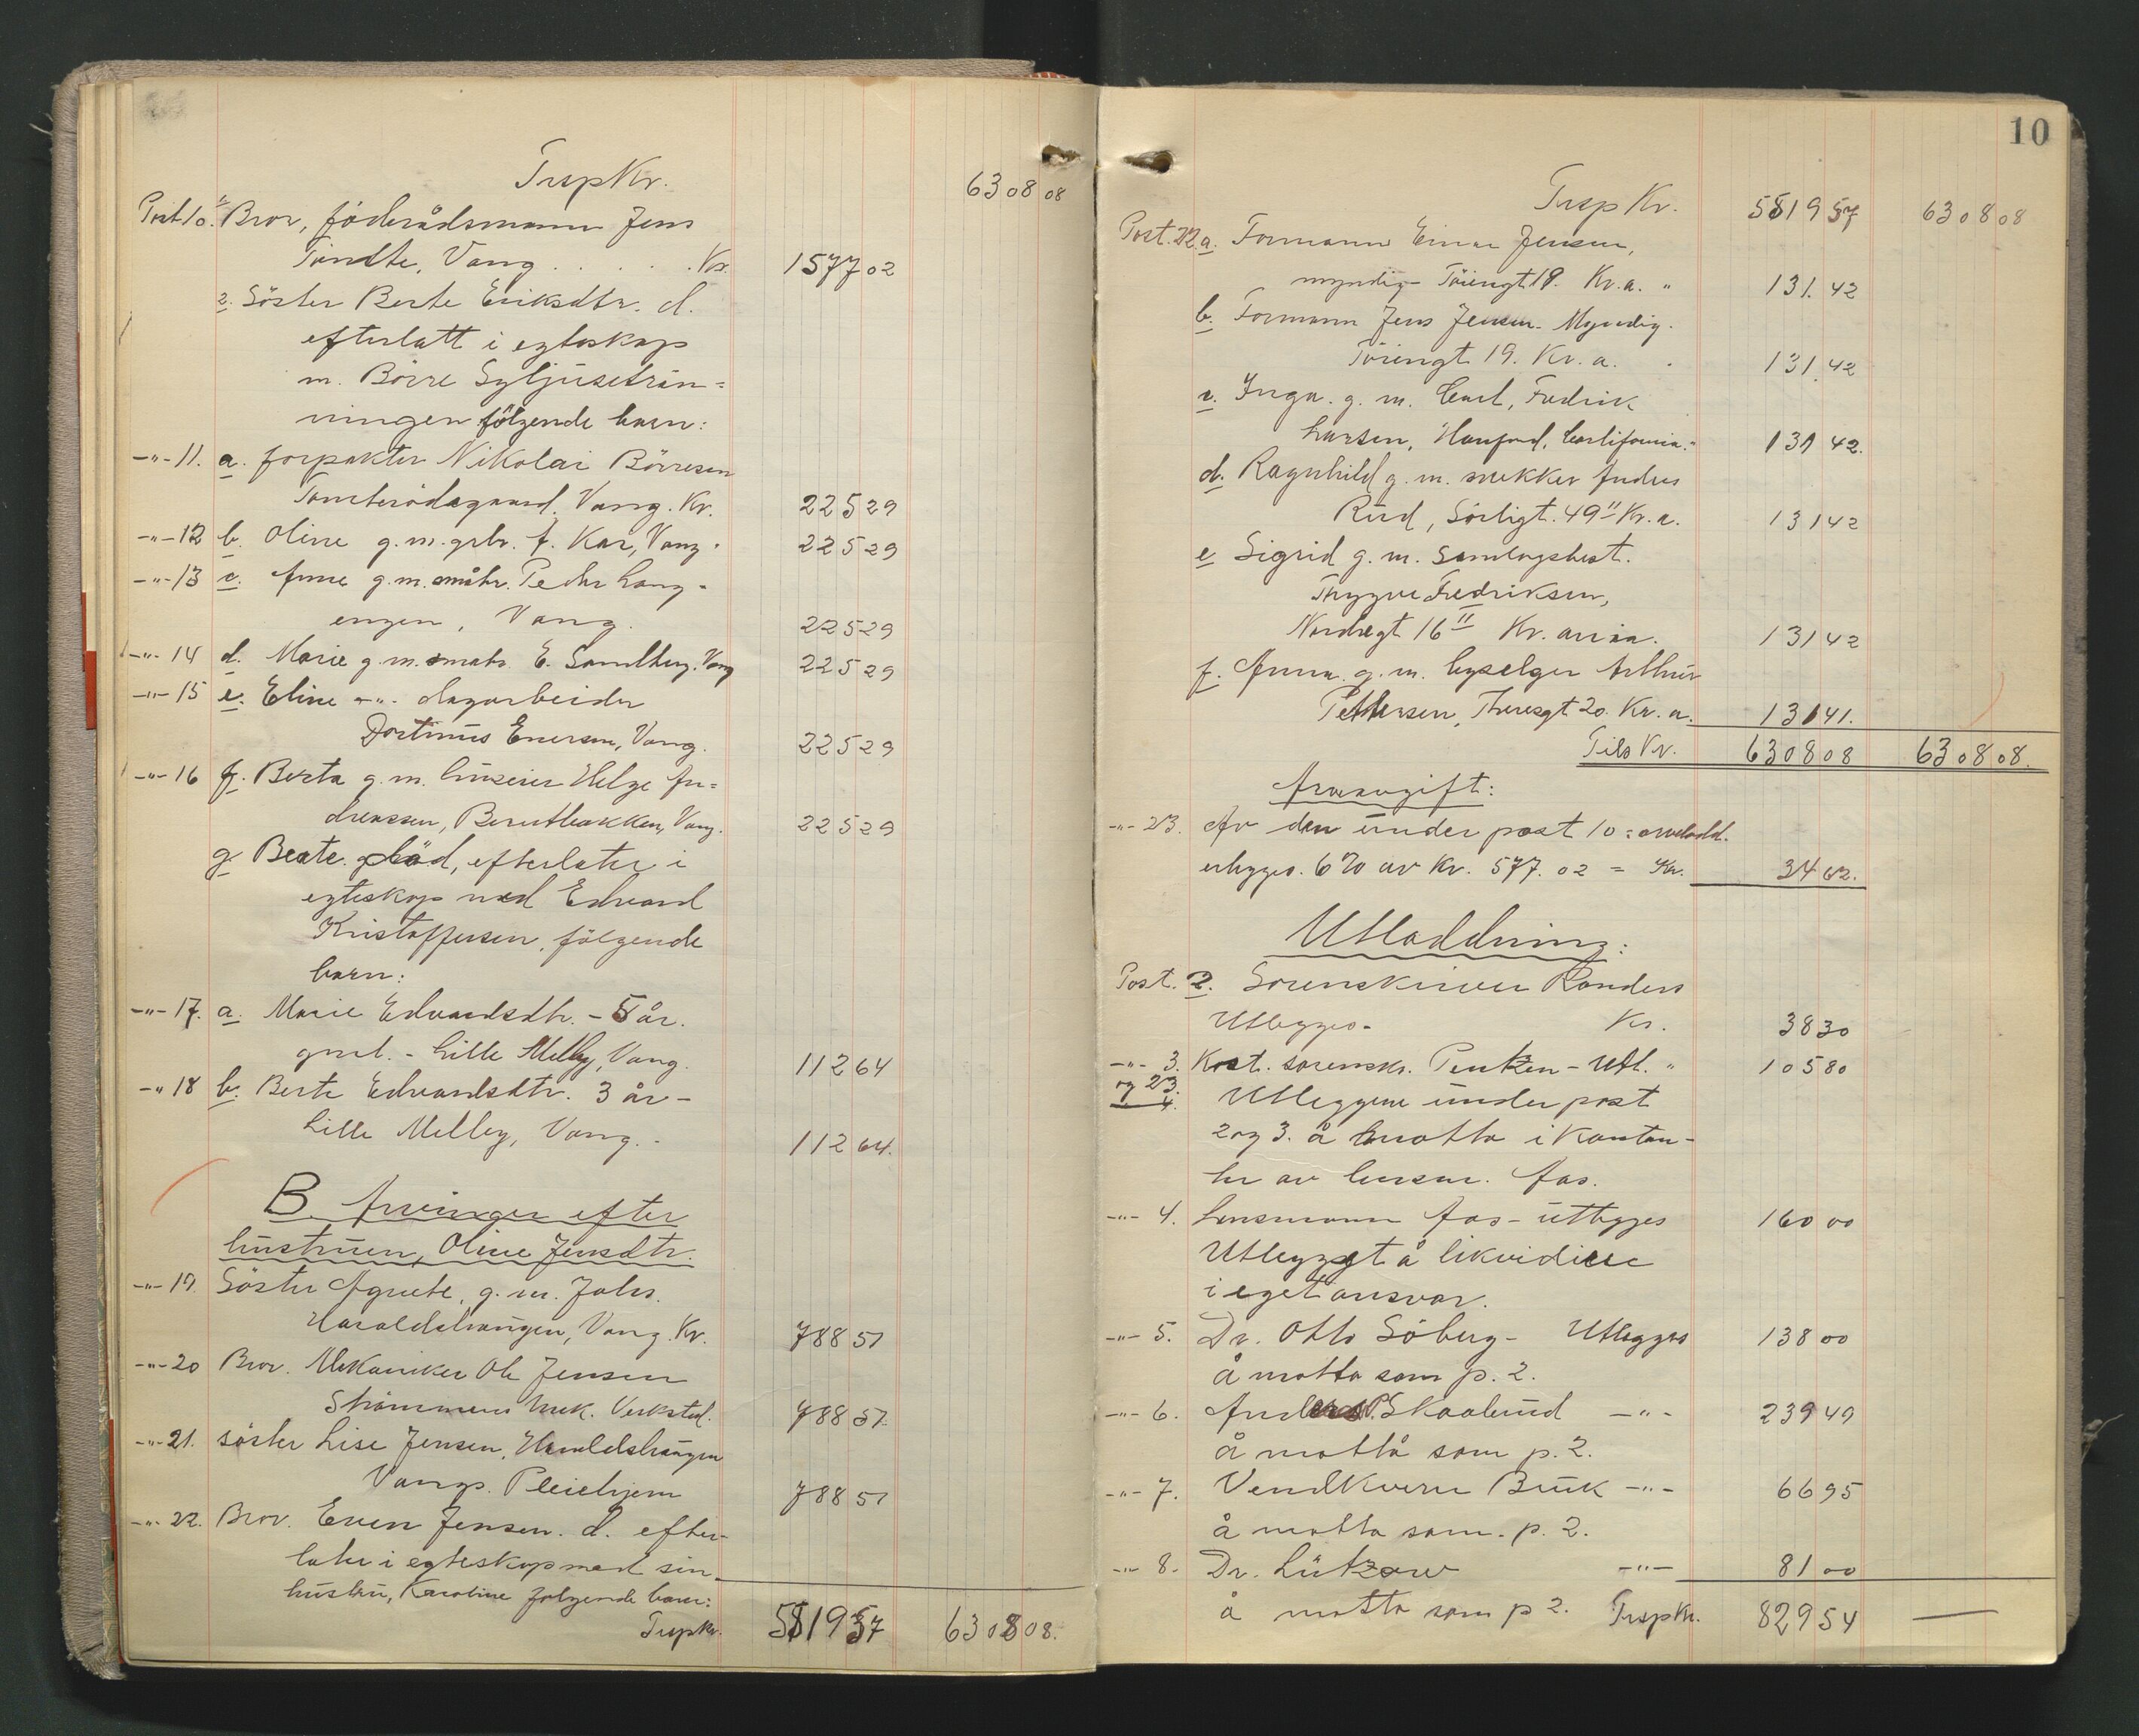 Trsp Kr. 6308 08
Post 10. 1. Bror, föderådsmann Jens
Tandte, Vang . . . . . Kr. 1577 02
2. Söster Berte Eriksdtr. d.
efterlatt i egteskap
m. Börre
ningen følgende barn:
-"- 11. a. forpakter Nikolai Börresen
Vang. Kr. 225 29
-"- 12 b. Oline g.m. grbr. f. Kar, Vang. 225 29
-"- 13 c. Anne g.m. småbr. Peder Lang-
engen, Vang. 225 29
-"- 14 d. Marie g.m. småbr. E. Sandberg. Vang 225 29
-"- 15 e. Eline -"- dagarbeider
Enersen, Vang. 225 29
-"- 16 f. Berta g.m. huseier Helge An=
dreassen, Vang. 225 29
g. Beate död, efterlater i
egteskap med Edvard
Kristoffersen, følgende
barn:
-"- 17. a. Marie Edvardsdtr. - 5 år.
gml. - Lille Melby, Vang. 112 64
-"- 18 b. Berte Edvardsdtr. 3 år -
Lille Melby, Vang. - 112 64.
B. Arvinger efter
hustruen, Oline Jensdtr.
-"- 19. Söster Agnete, g.m. Johs.
Haraldshaugen, Vang. Kr. 788 51
-"- 20 Bror. Mekaniker Ole Jensen
Strömmens Mek. Verksted. 788 51.
-"- 21. söster Lise Jensen, Haraldshaugen
Vangs. Pleiehjem 788 51
-"- 22. Bror. Even Jensen. d. efter-
later i egteskap med sin
hustru, Karoline følgende barn:
Trsp kr. 5519 57 6308 08.
10
Trsp Kr. 5519 57 6308 08
Post. 22. a. Formann Einar Jensen,
myndig - Töiengt 19. Kr.a. " 131. 42
b. Formann Jens Jensen - Myndig.
Töiengt 19. Kr. a. . 131. 42
c. Inga. g. m. Carl, Fredrik
Larsen, Hanford, California. " 131 42.
d. Ragnhild g. m. snekker Anders
Rud, Sörligt. 49 II Kr. a. 131 42
e. Sigrid g. m. Samlagsbest.
Thrygve Fredriksen,
Nordregt 16 II Kr. ania. 131 42
f. Anna. g. m. Arthur
Pettersen, Theresgt 20. Kr. a. 131 41.
Tils Kr. 6308 08 6308 08.
Arveavgift:
-"- 23. Av den under post 10 : arvelodd.
erlegges. 6 % av Kr. 577. 02 = Kr. 34 62.
Utloddning:
Post. 2. Sorenskriver Randers
Utlegges - Kr. 38 30
-"- 3. Kost. sorenskr. Pentzen - Utl. " 105 80
og 23. 4. Utleggene under post
2 og 3. å motta i kontan-
ter av lensm. Aas.
-"- 4. Lensmann Aas - utlegges 160 00
Utlegget å likvidere
i eget ansvar.
-"- 5. Dr. Otto Söberg - Utlegges 138 00
å motta som p. 2.
-"- 6. Anders P. Skaalrud -"- 239 49
å motta som p. 2.
-"- 7. Vendkvern Bruk -"- 66 95
å motta som. p. 2.
-"- 8. Dr. Lützow -"- 81 00
å motta som p 2. Trsp Kr. 829 54 —